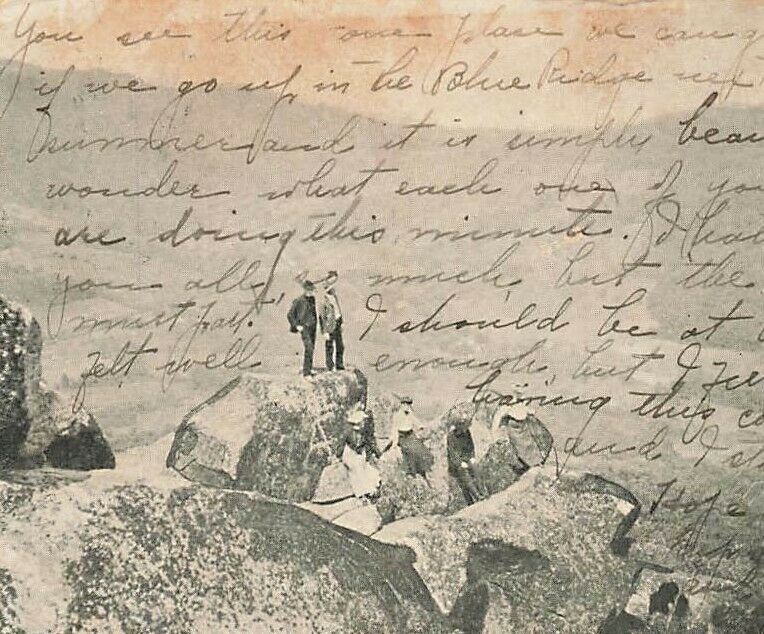 You see this one place we can g
if we go up in the Blue Ridge nex
summer and it is simply beau
wonder what each one of you
are doing this minute. I ha
you all so much but the
must part. I should be at
felt well enough, but I
having this co
and I st
Hope